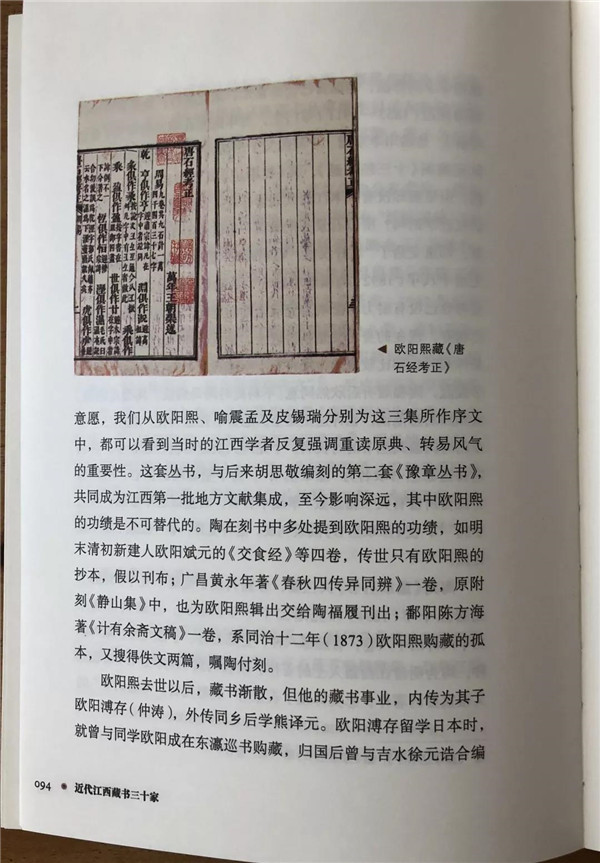 唐石經考正
萬年王朝㻮述
欧阳熙藏《唐
石经考正》
意愿，我们从欧阳熙、喻震孟及皮锡瑞分别为这三集所作序文
中，都可以看到当时的江西学者反复强调重读原典、转易风气
的重要性。这套丛书，与后来胡思敬编刻的第二套《豫章丛书》，
共同成为江西第一批地方文献集成，至今影响深远，其中欧阳熙
的功绩是不可替代的。陶在刻书中多处提到欧阳熙的功绩，如明
末清初新建人欧阳斌元的《交食经》等四卷，传世只有欧阳熙的
抄本，假以刊布；广昌黄永年著《春秋四传异同辨》一卷，原附
刻《静山集》中，也为欧阳熙辑出交给陶福履刊出；鄱阳陈方海
著《计有余斋文稿》一卷，系同治十二年（1873）欧阳熙购藏的孤
本，又搜得佚文两篇，嘱陶付刻。
欧阳熙去世以后，藏书渐散，但他的藏书事业，内传为其子
欧阳溥存（仲涛），外传同乡后学熊译元。欧阳溥存留学日本时，
就曾与同学欧阳成在东瀛巡书购藏，归国后曾与吉水徐元诰合编
094 近代江西藏书三十家